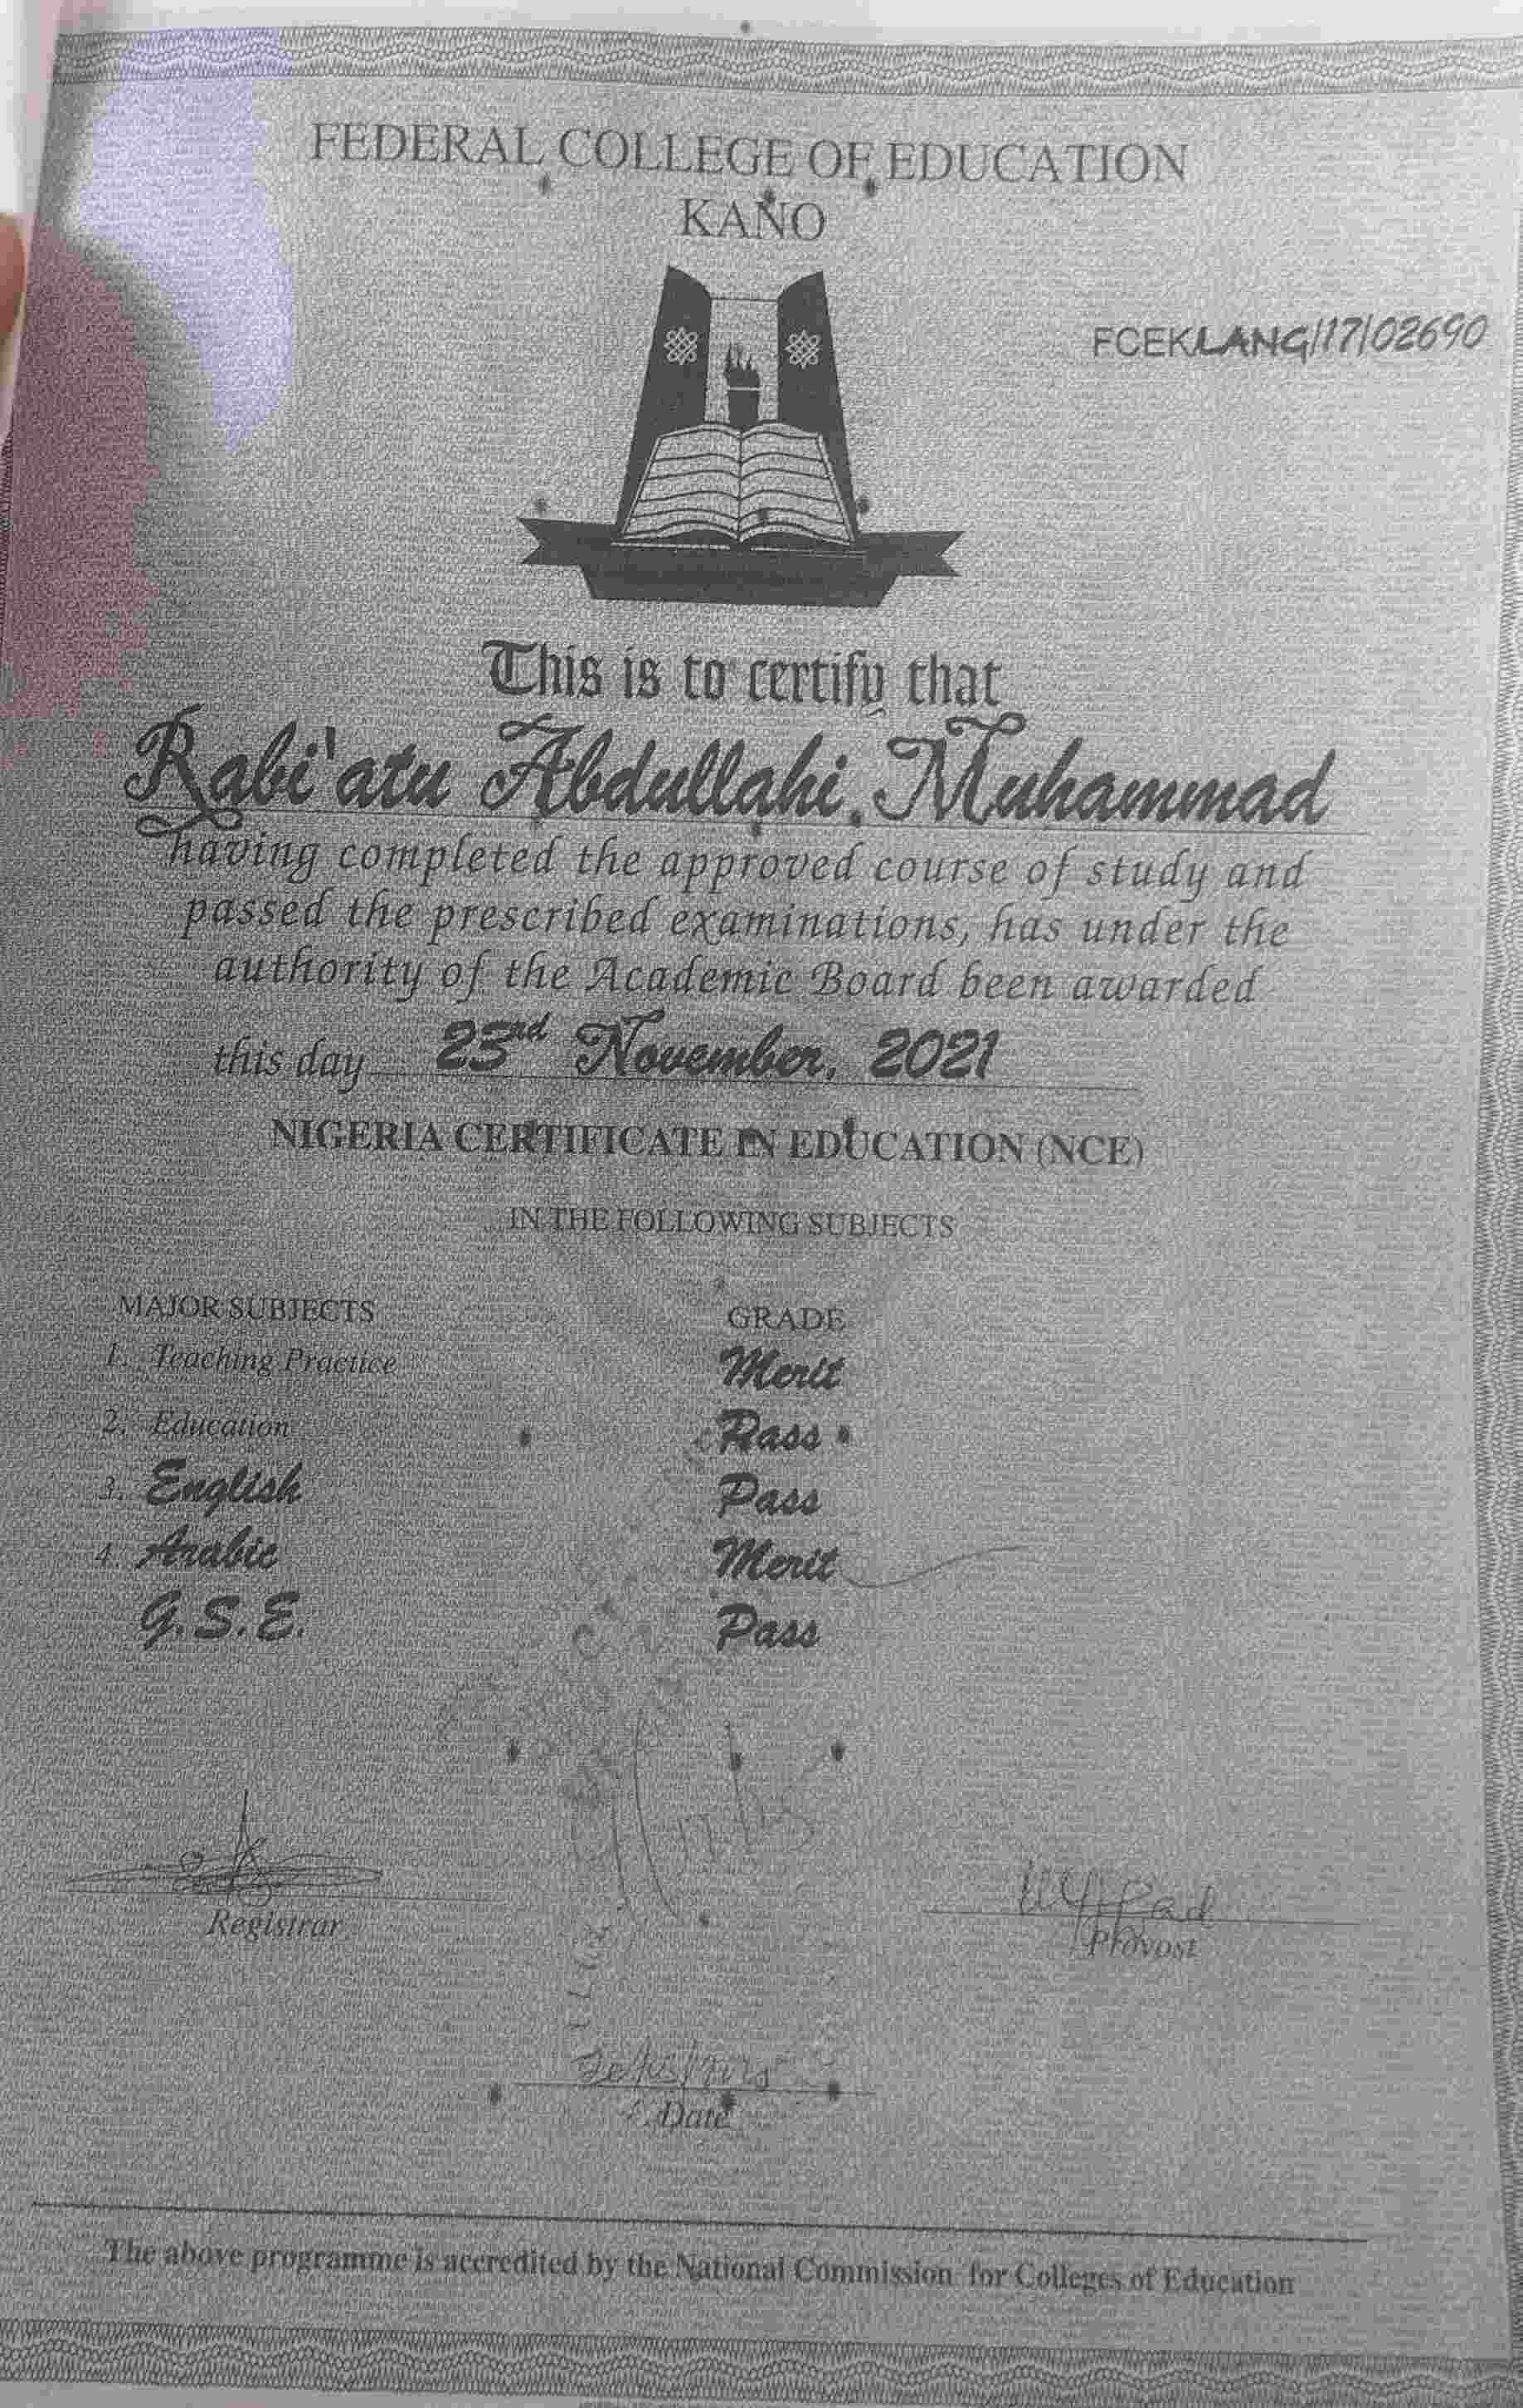 FEDERAL COLLEGE OF EDUCATION
KANO
FCEKLANG/17/02690
This is to certify that
Rabi'atu Abdullahi Muhammad
having completed the approved course of study and
passed the prescribed examinations, has under the
authority of the Academic Board been awarded
this day 23rd November, 2021
NIGERIA CERTIFICATE IN EDUCATION (NCE)
IN THE FOLLOWING SUBJECTS
MAJOR SUBJECTS GRADE
1. Teaching Practice Merit
2. Education Pass
3. English Pass
4. Arabic Merit
G.S.E. Pass
Registrar
Provost
Date
The above programme is accredited by the National Commission for Colleges of Education